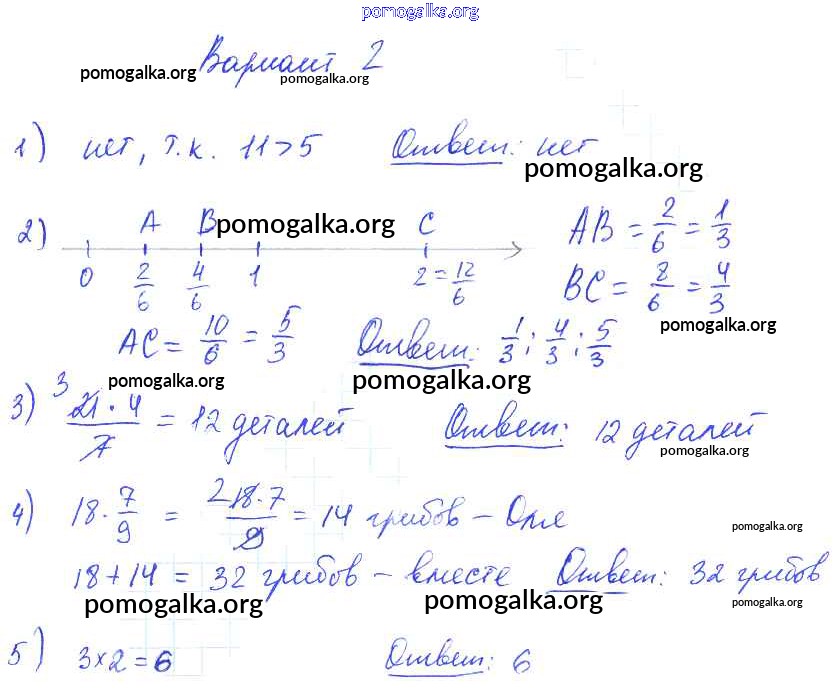 pomogalka.org
Вариант 2
pomogalka.org pomogalka.org
1) нет, т.к. 11>5 Ответ: нет
pomogalka.org
2) A B pomogalka.org C AB = 2/6 = 1/3
0 2/6 4/6 1 2 = 12/6 BC = 8/6 = 4/3
pomogalka.org
AC = 10/6 = 5/3 Ответ: 1/3; 4/3; 5/3
pomogalka.org pomogalka.org
3) 3 21·4/7 = 12 деталей Ответ: 12 деталей
pomogalka.org
4) 18·7/9 = 2 18·7/9 = 14 грибов – Оля
pomogalka.org
18+14 = 32 грибов – вместе Ответ: 32 грибов
pomogalka.org pomogalka.org pomogalka.org
5) 3×2=6 Ответ: 6